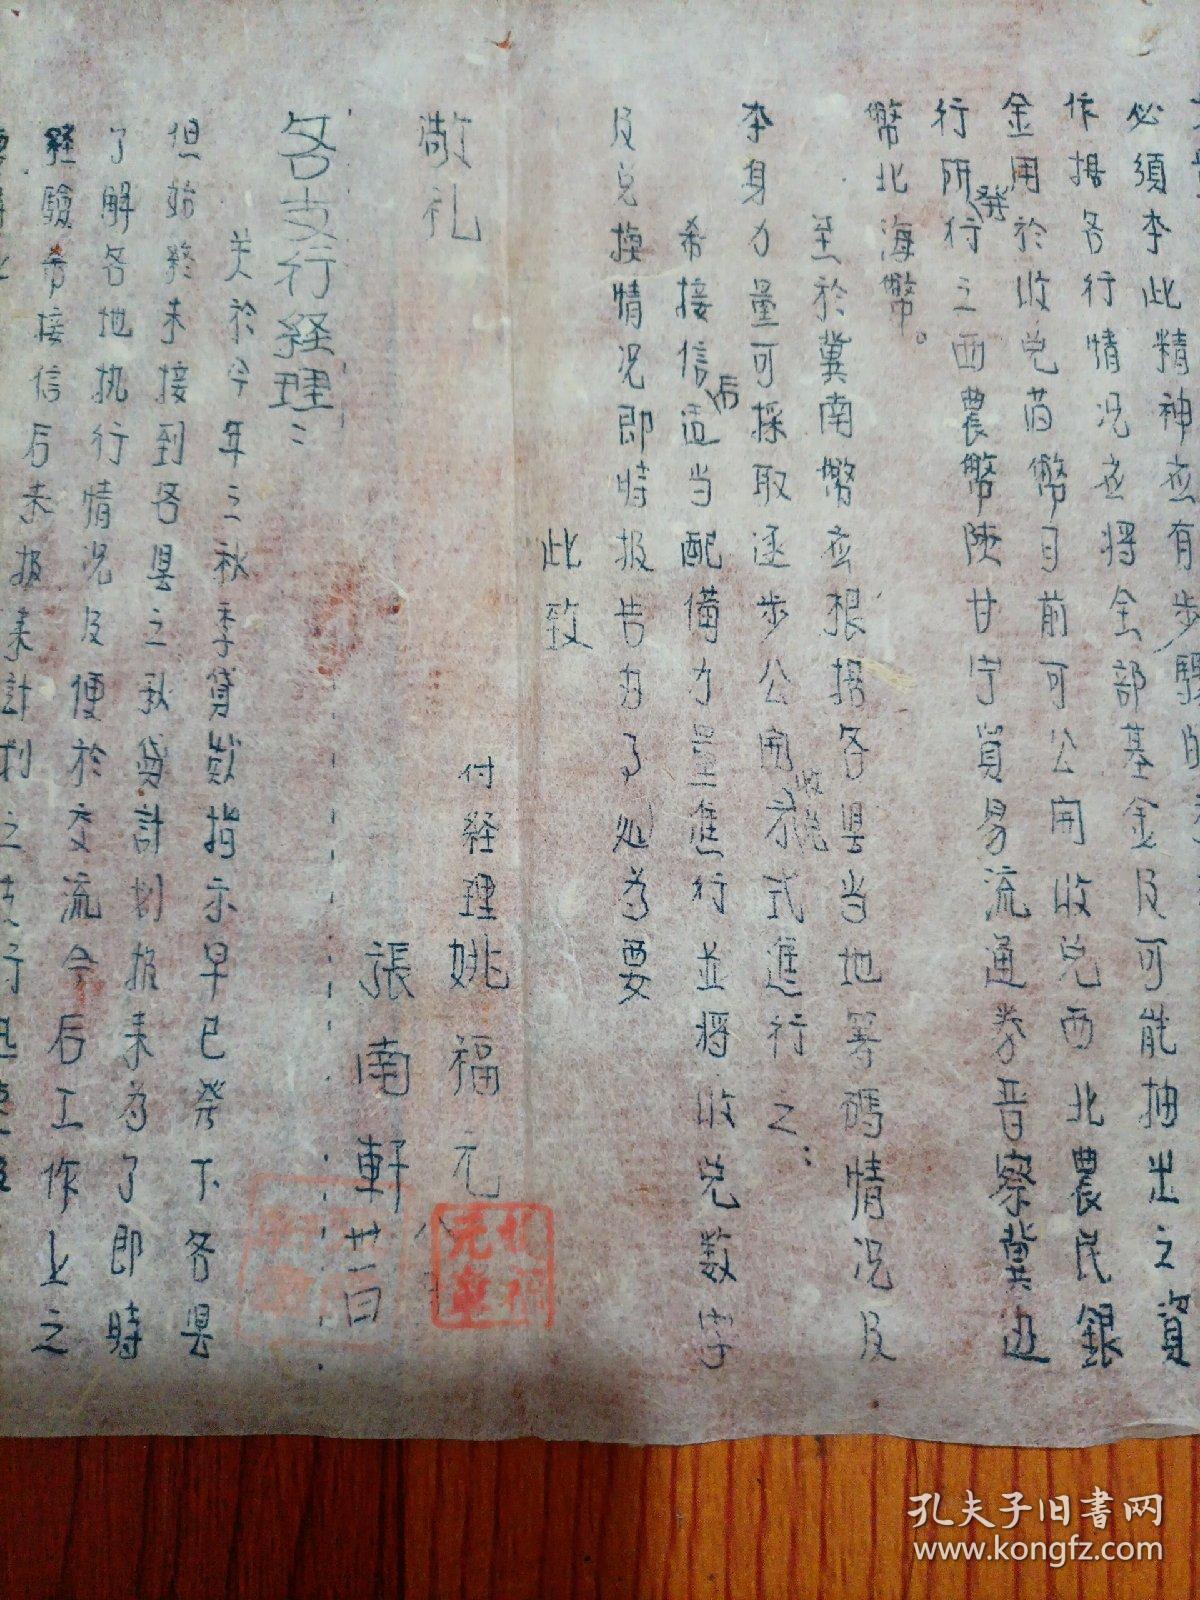 必須本此精神应有步驟的
作据各行情况应将全部基金及可能抽出之資
金用於收兑芮幣目前可公開收兑西北農民銀
行所發行之西農幣陕甘宁貿易流通券晋察冀边
幣北海幣。
至於冀南幣应根据各县当地筹碼情况及
本身力量可採取逐步公開收兑形式進行之：
希接信后适当配備力量進行並将收兑数字
及兑换情况即時报告勿了处為要
此致
敬礼
付経理姚福元
張南軒廿一日
各支行経理：
关於今年之秋季貸款指示早已発下各县
但始終未接到各县之秋貸計划报来為了即時
了解各地执行情况及便於交流今后工作上之
経驗希接信后未报来計划之支行
孔夫子旧書网
www.kongfz.com